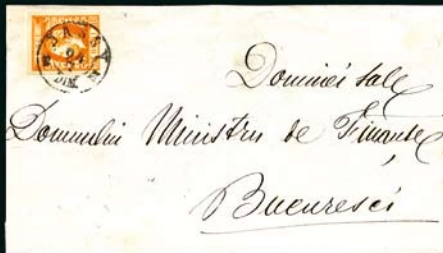 JASSY
Domniei Sale
Domnului Ministru de Finanse
Bucuresci